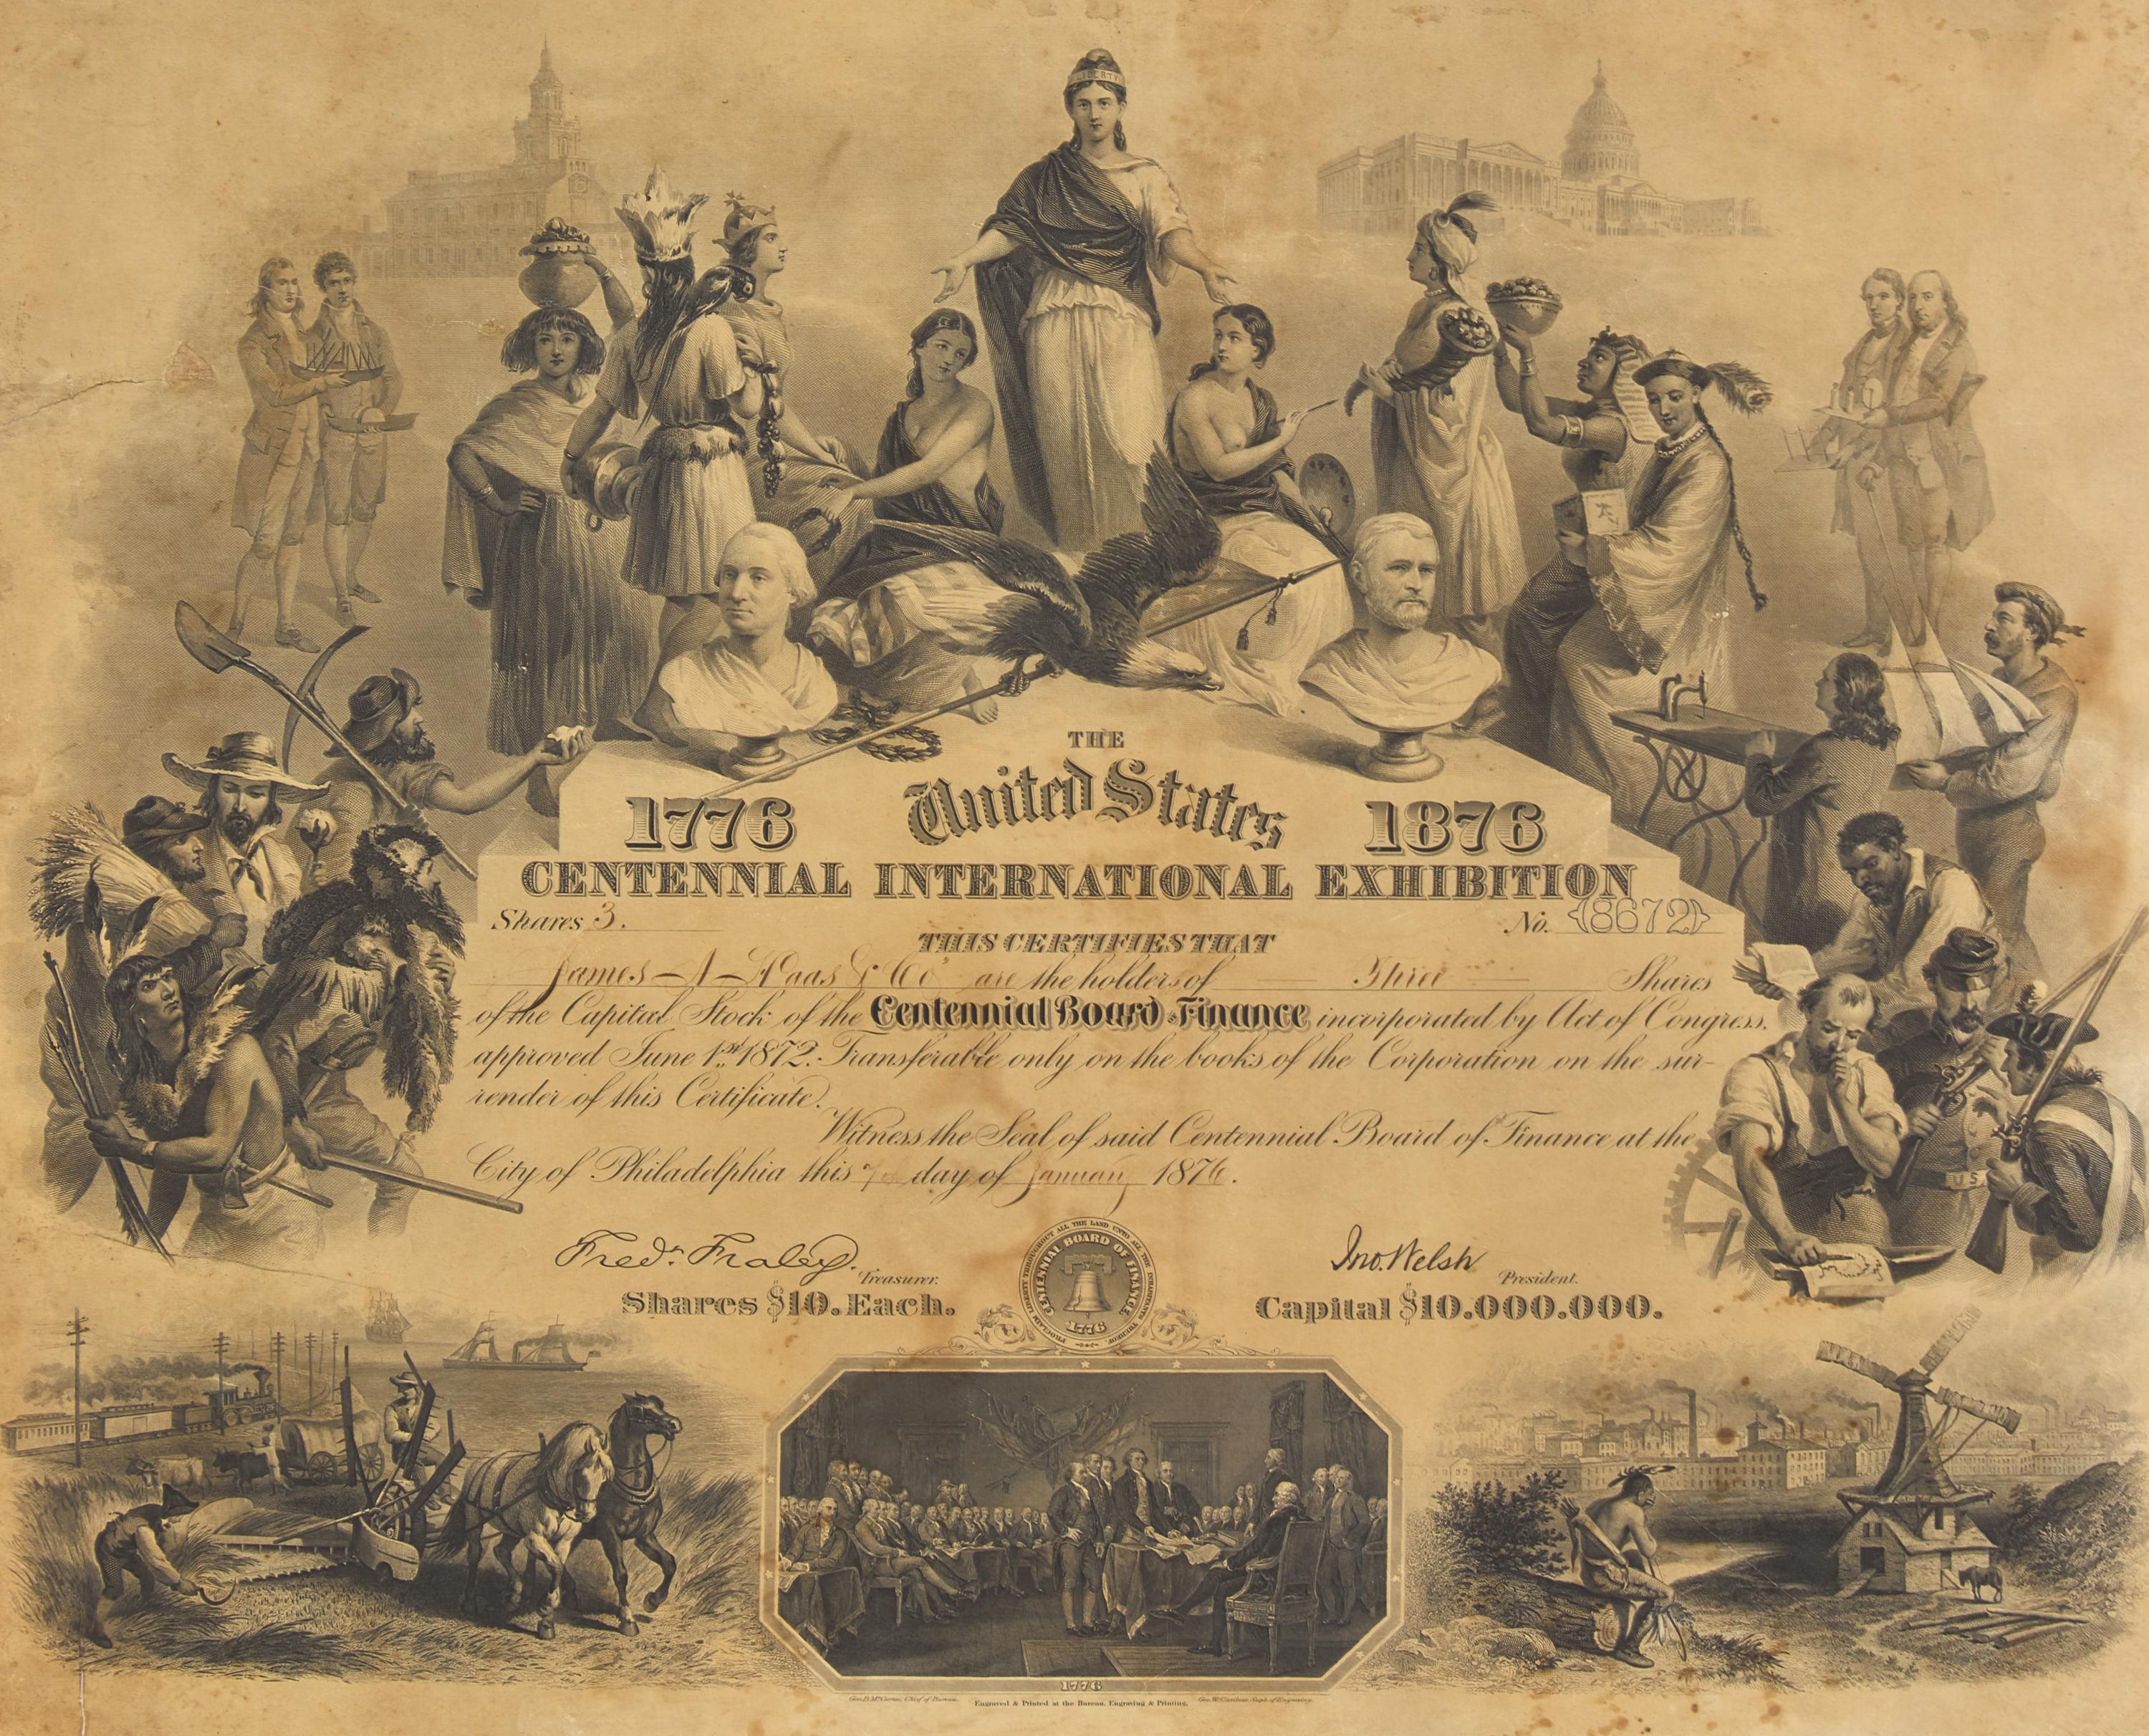 LIBERTY
THE
United States
1776 1876
CENTENNIAL INTERNATIONAL EXHIBITION
Shares 3. No. 18672
THIS CERTIFIES THAT
James A Haas & Co are the holders of Three Shares
of the Capital Stock of the Centennial Board of Finance incorporated by Act of Congress,
approved June 1st 1872. Transferable only on the books of the Corporation on the sur-
render of this Certificate.
Witness the Seal of said Centennial Board of Finance at the
City of Philadelphia this day of January 1876.
Fredk. Fraley. Treasurer.
Jno. Welsh President.
Shares $10. Each.
Capital $10.000.000.
PROCLAIM LIBERTY THROUGHOUT ALL THE LAND UNTO ALL THE INHABITANTS THEREOF
CENTENNIAL BOARD OF FINANCE
1776
US
1776
Geo. B. McCartee, Chief of Bureau. Engraved & Printed at the Bureau, Engraving & Printing. Geo. W. Casilear, Supt. of Engraving.